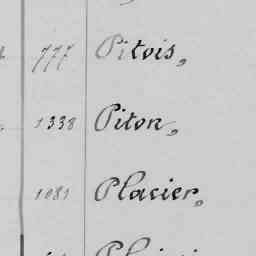 777 Pitois,
1338 Piton,
1081 Placier,